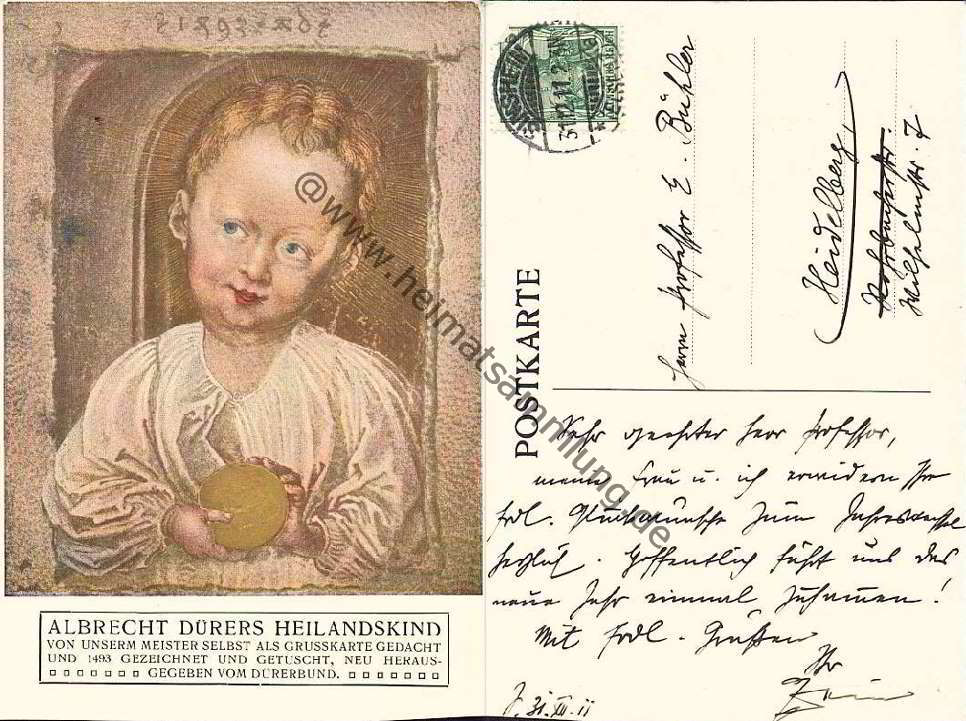 1493
ALBRECHT DÜRERS HEILANDSKIND
VON UNSERM MEISTER SELBST ALS GRUSSKARTE GEDACHT
UND 1493 GEZEICHNET UND GETUSCHT, NEU HERAUS-
GEGEBEN VOM DÜRERBUND.
@www.heimatsammlung.de
SINSHEIM
31.12.11.
POSTKARTE
Herrn Professor E. Bühler
Heidelberg,
Wilhelmstr. 7
Sehr geehrter Herr Professor,
meine Frau u. ich erwidern Ihre
frdl. Glückwünsche zum Jahreswechsel
herzlich. Hoffentlich führt uns das
neue Jahr einmal zusammen!
Mit frdl. Grüßen
Ihr
31. XII. 11